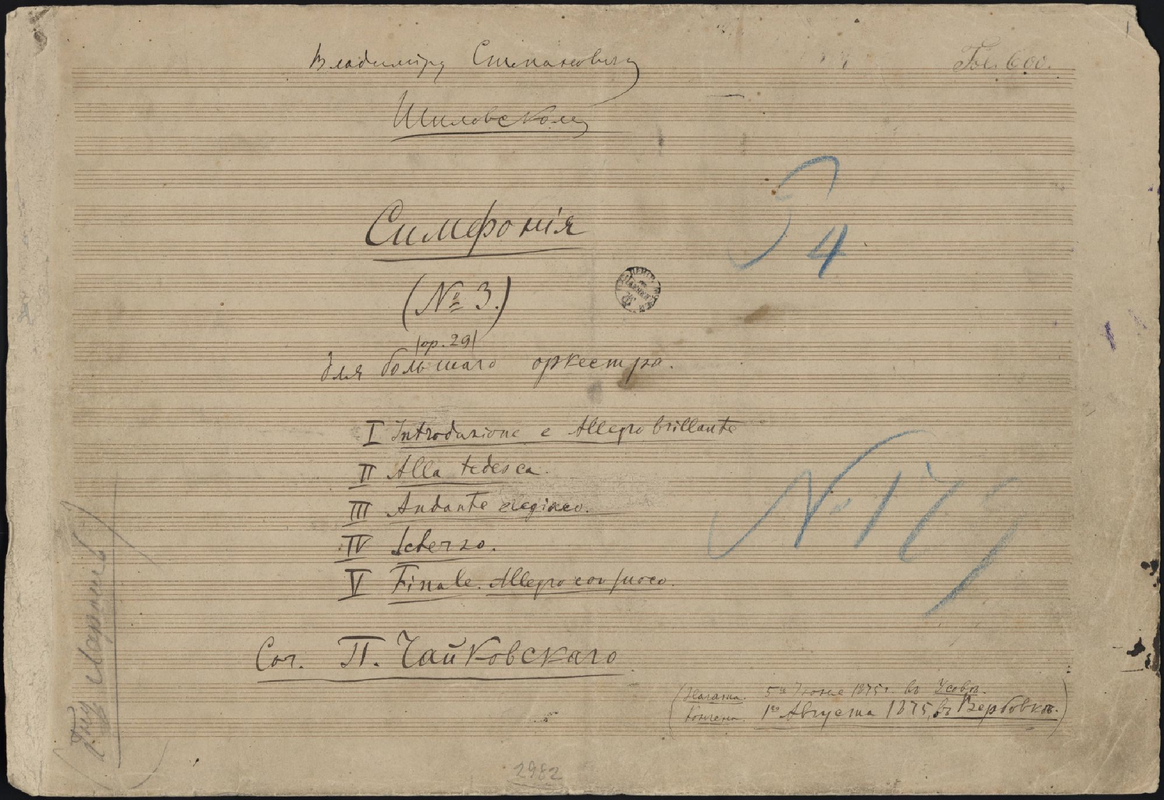 Владиміру Степановичу
Шиловскому
Симфонія
(№ 3.)
|op. 29|
для большаго оркестра.
I Introduzione e Allegro brillante
II Alla tedesca.
III Andante elegiaco.
IV Scherzo.
V Finale. Allegro con fuoco.
Соч. П. Чайковскаго
(Начата 5го Іюня 1875 г. въ Усовѣ.
Кончена 1го Августа 1875, въ Вербовкѣ.)
4
N 17
2982